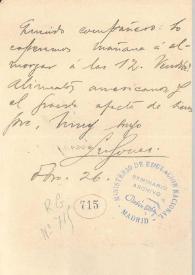 Querido compañero: Lo
esperamos mañana á al-
morzar á las 12. Vendrá
Alimentos americanos y
el grande afecto de siem
pre, muy suyo
Dbre. 26.
R.G.
Nº 715
715
MINISTERIO DE EDUCACIÓN NACIONAL
SEMINARIO
ARCHIVO
MADRID